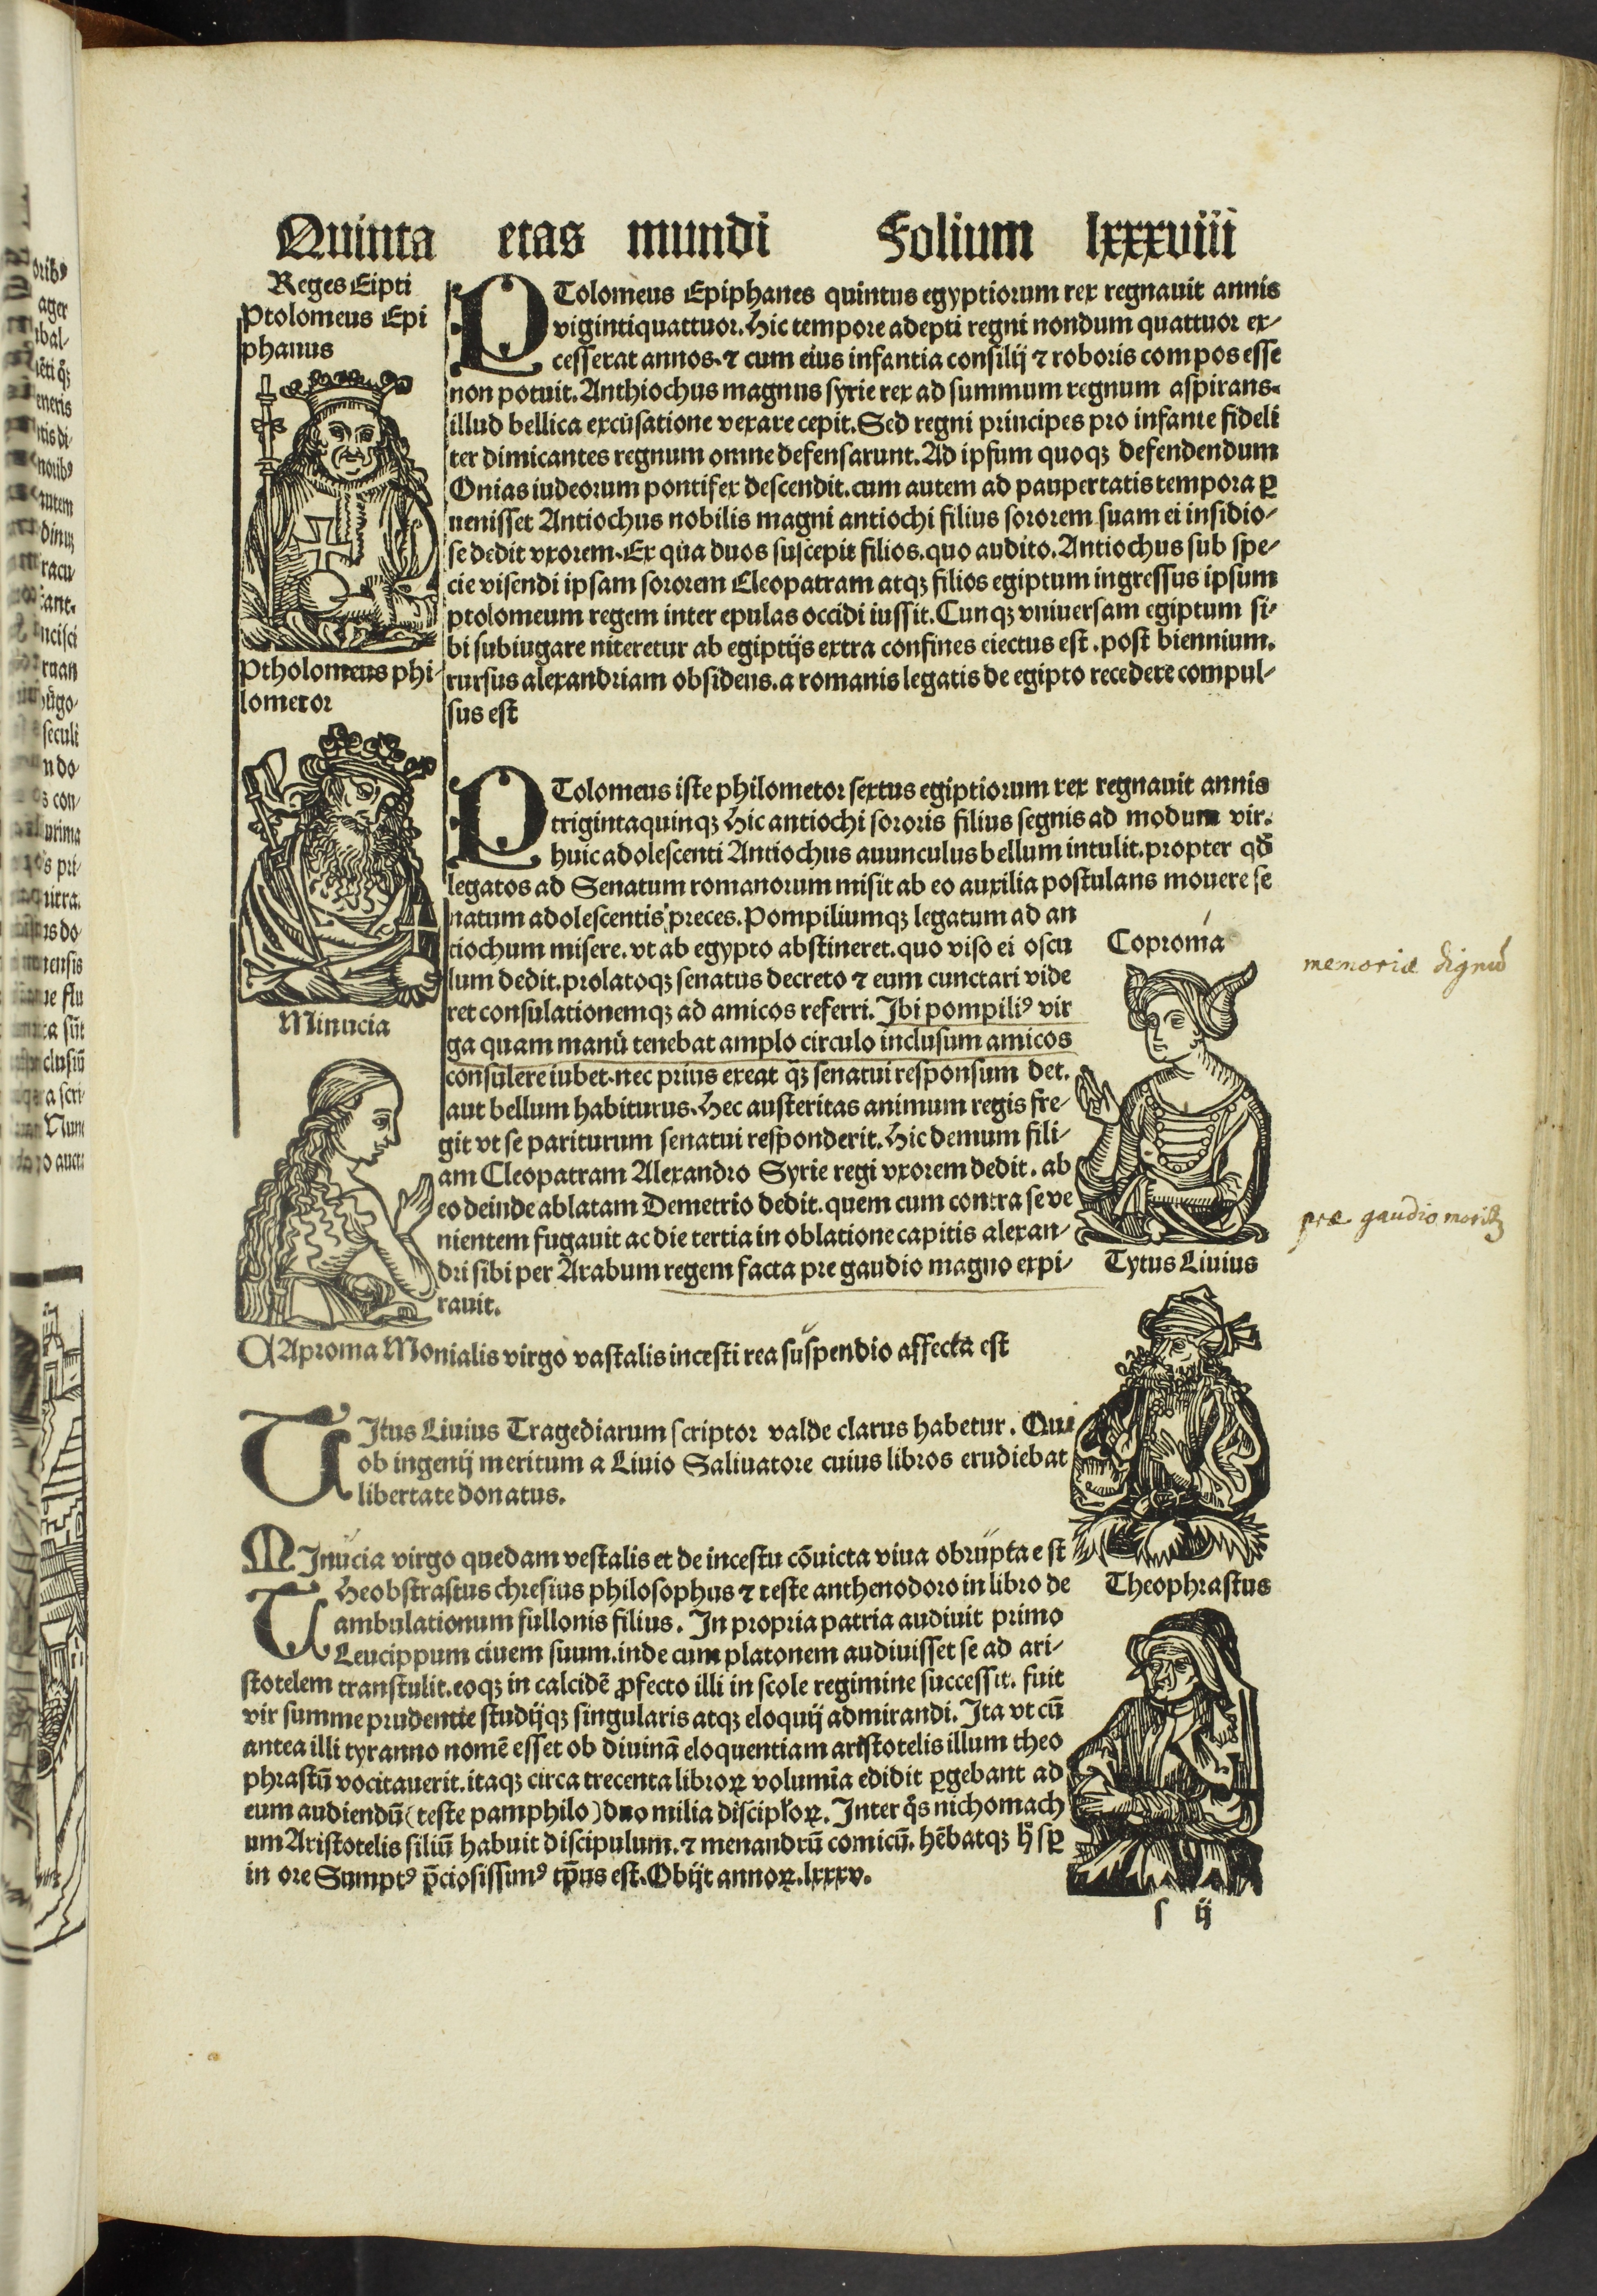 Quinta etas mundi Folium lxxxviii
Reges Eipti
Ptolomeus Epi
phanus
PTolomeus Epiphanes quintus egyptiorum rex regnauit annis
vigintiquattuor. Hic tempore adepti regni nondum quattuor ex-
cesserat annos. ⁊ cum eius infantia consilij ⁊ roboris compos esse
non potuit. Anthiochus magnus syrie rex ad summum regnum aspirans.
illud bellica excusatione vexare cepit. Sed regni principes pro infante fideli
ter dimicantes regnum omne defensarunt. Ad ipsum quoqꝫ defendendum
Onias iudeorum pontifex descendit. cum autem ad paupertatis tempora ꝑ
uenisset Antiochus nobilis magni antiochi filius sororem suam ei insidio-
se dedit vxorem. Ex qua duos suscepit filios. quo audito. Antiochus sub spe-
cie visendi ipsam sororem Cleopatram atqꝫ filios egiptum ingressus ipsum
ptolomeum regem inter epulas occidi iussit. Cunqꝫ vniuersam egiptum si-
bi subiugare niteretur ab egiptijs extra confines eiectus est. post biennium.
rursus alexandriam obsidens. a romanis legatis de egipto recedere compul-
sus est
Ptholomeus phi-
lometor
PTolomeus iste philometor sextus egiptiorum rex regnauit annis
trigintaquinqꝫ Hic antiochi sororis filius segnis ad modum vir.
huic adolescenti Antiochus auunculus bellum intulit. propter qđ
legatos ad Senatum romanorum misit ab eo auxilia postulans mouere se
natum adolescentis preces. Pompiliumqꝫ legatum ad an
tiochum misere. vt ab egypto abstineret. quo viso ei oscu
lum dedit. prolatoqꝫ senatus decreto ⁊ eum cunctari vide
ret consulationemqꝫ ad amicos referri. Ibi pompiliꝰ vir
ga quam manu tenebat amplo circulo inclusum amicos
consulere iubet. nec prius exeat qꝫ senatui responsum det.
aut bellum habiturus. Hec austeritas animum regis fre-
git vt se pariturum senatui responderit. Hic demum fili-
am Cleopatram Alexandro Syrie regi vxorem dedit. ab
eo deinde ablatam Demetrio dedit. quem cum contra se ve
nientem fugauit ac die tertia in oblatione capitis alexan-
dri sibi per Arabum regem facta pre gaudio magno expi-
rauit.
Minucia
Coproma
memoriæ dignū
præ gaudio moritꝫ
Tytus Liuius
CAproma Monialis virgo vastalis incesti rea suspendio affecta est
TItus Liuius Tragediarum scriptor valde clarus habetur. Qui
ob ingenij meritum a Liuio Saliuatore cuius libros erudiebat
libertate donatus.
MInucia virgo quedam vestalis et de incestu cōuicta viua obrupta est
THeobstrastus chresius philosophus ⁊ teste anthenodoro in libro de
ambulationum fullonis filius. In propria patria audiuit primo
Leucippum ciuem suum. inde cum platonem audiuisset se ad ari-
stotelem transtulit. eoqꝫ in calcidē ꝓfecto illi in scole regimine successit. fuit
vir summe prudentie studijqꝫ singularis atqꝫ eloquij admirandi. Ita vt cū
antea illi tyranno nomē esset ob diuinā eloquentiam aristotelis illum theo
phrastū vocitauerit. itaqꝫ circa trecenta libroꝝ volumīa edidit ꝑgebant ad
eum audiendū (teste pamphilo) duo milia discipłoꝝ. Inter q̄s nichomach
um Aristotelis filiū habuit discipulum. ⁊ menandrū comicū. hēbatqꝫ h̄ sꝑ
in ore Sumptꝰ p̄ciosissimꝰ tp̄us est. Obijt annoꝝ. lxxxv.
Theophrastus
s ij